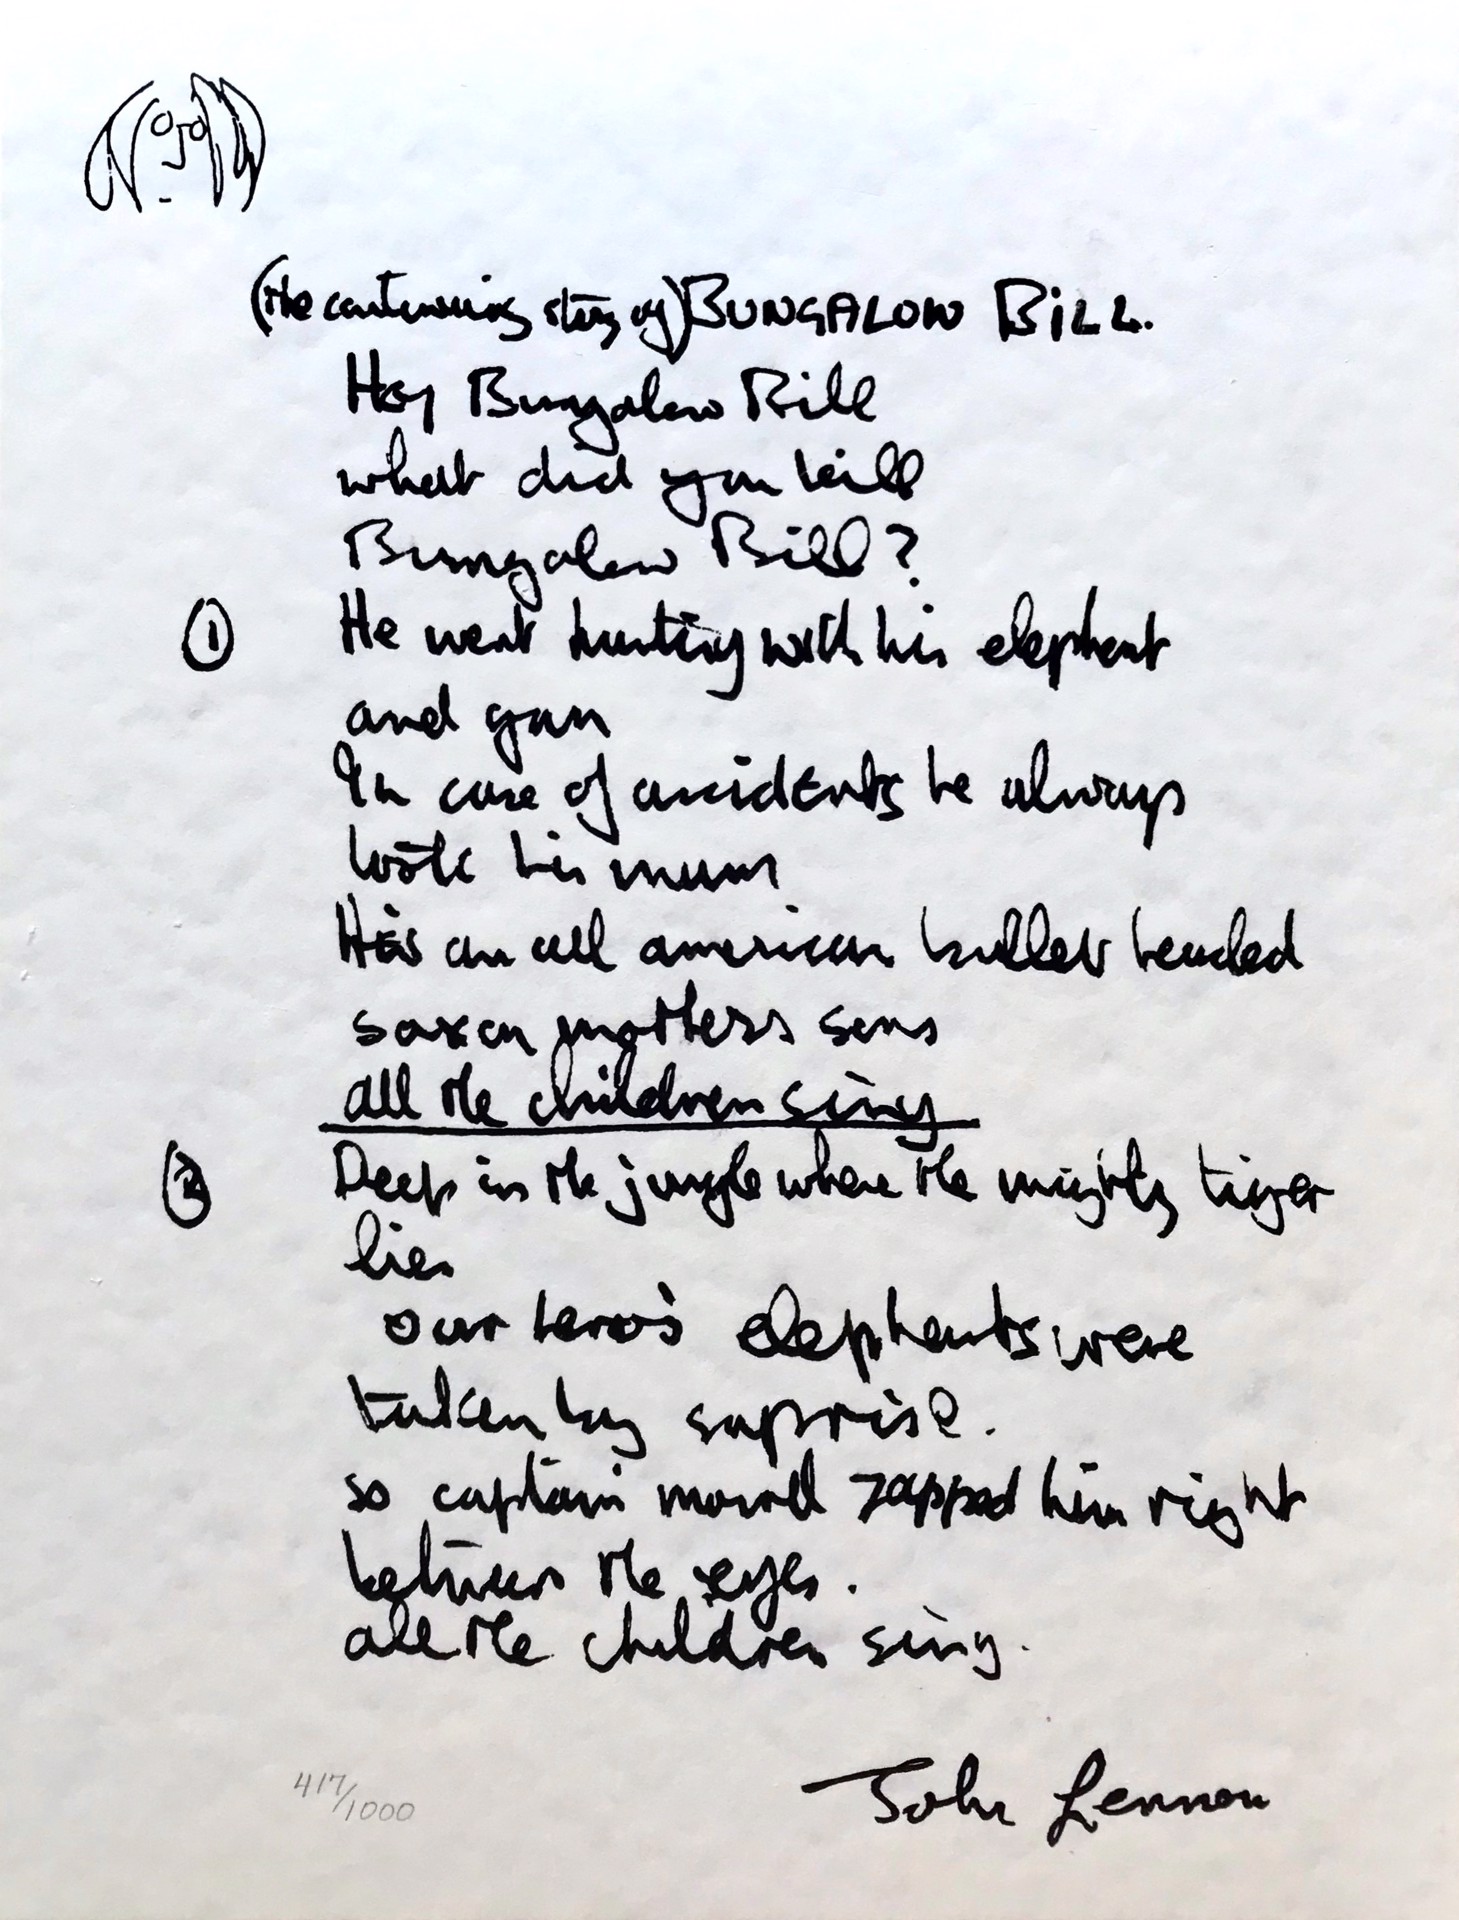 (the continuing story of) BUNGALOW BILL.
Hey Bungalow Bill
what did you kill
Bungalow Bill?
① He went hunting with his elephant
and gun
In case of accidents he always
took his mum
He's an all american bullet headed
saxon mothers sons
all the children sing
② Deep in the jungle where the mighty tiger
lies
our hero's elephants were
taken by suprise.
so captain marvel zapped him right
between the eyes.
all the children sing.
John Lennon
417/1000